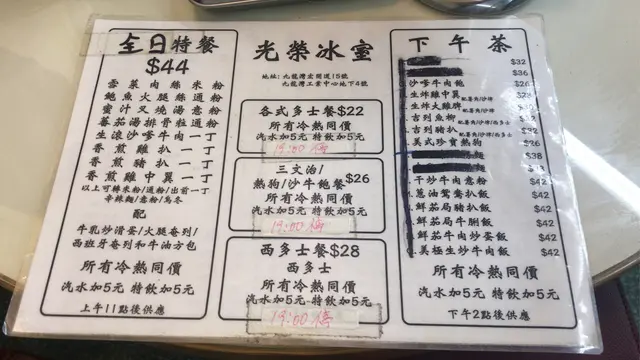 全日特餐
$44
雪菜肉絲米粉
鮑魚火腿絲通粉
蜜汁叉燒湯意粉
蕃茄湯排骨粒通粉
生滾沙爹牛肉一丁
香煎雞扒一丁
香煎豬扒一丁
香煎雞中翼一丁
以上可轉米粉/通粉/出前一丁
辛辣麵/意粉/烏冬
配
牛乳炒滑蛋/火腿奄列/
西班牙奄列和牛油方包
所有冷熱同價
汽水加5元 特飲加5元
上午11點後供應
光榮冰室
地址: 九龍灣宏開道15號
九龍灣工業中心地下4號
各式多士餐$22
所有冷熱同價
汽水加5元 特飲加5元
三文治/
熱狗/沙牛飽餐 $26
所有冷熱同價
汽水加5元 特飲加5元
19:00 停
西多士餐$28
西多士
所有冷熱同價
汽水加5元 特飲加5元
19:00 停
下午茶
$32
$36
沙嗲牛肉飽
生炸雞中翼
生炸雞髀
吉列魚柳
吉列豬扒
美式珍寶熱狗
麵 $38
麵
干炒牛肉意粉 $42
蔥油鴛鴦扒飯 $42
鮮茄焗豬扒飯 $42
鮮茄牛脷飯 $42
鮮茄牛肉炒蛋飯 $42
美極生炒牛肉飯 $42
所有冷熱同價
汽水加5元 特飲加5元
下午2點後供應